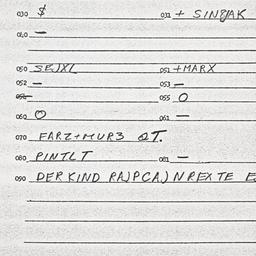 030 $ 031 + SIN8JAK
040 —
050 SEJXL 051 + MARX
052 — 053 —
055 O
060 O 061 —
070 FARZ+MUR3 QT.
080 PINTLT 081 —
090 DER KIND PAJPCAJNREXTE E